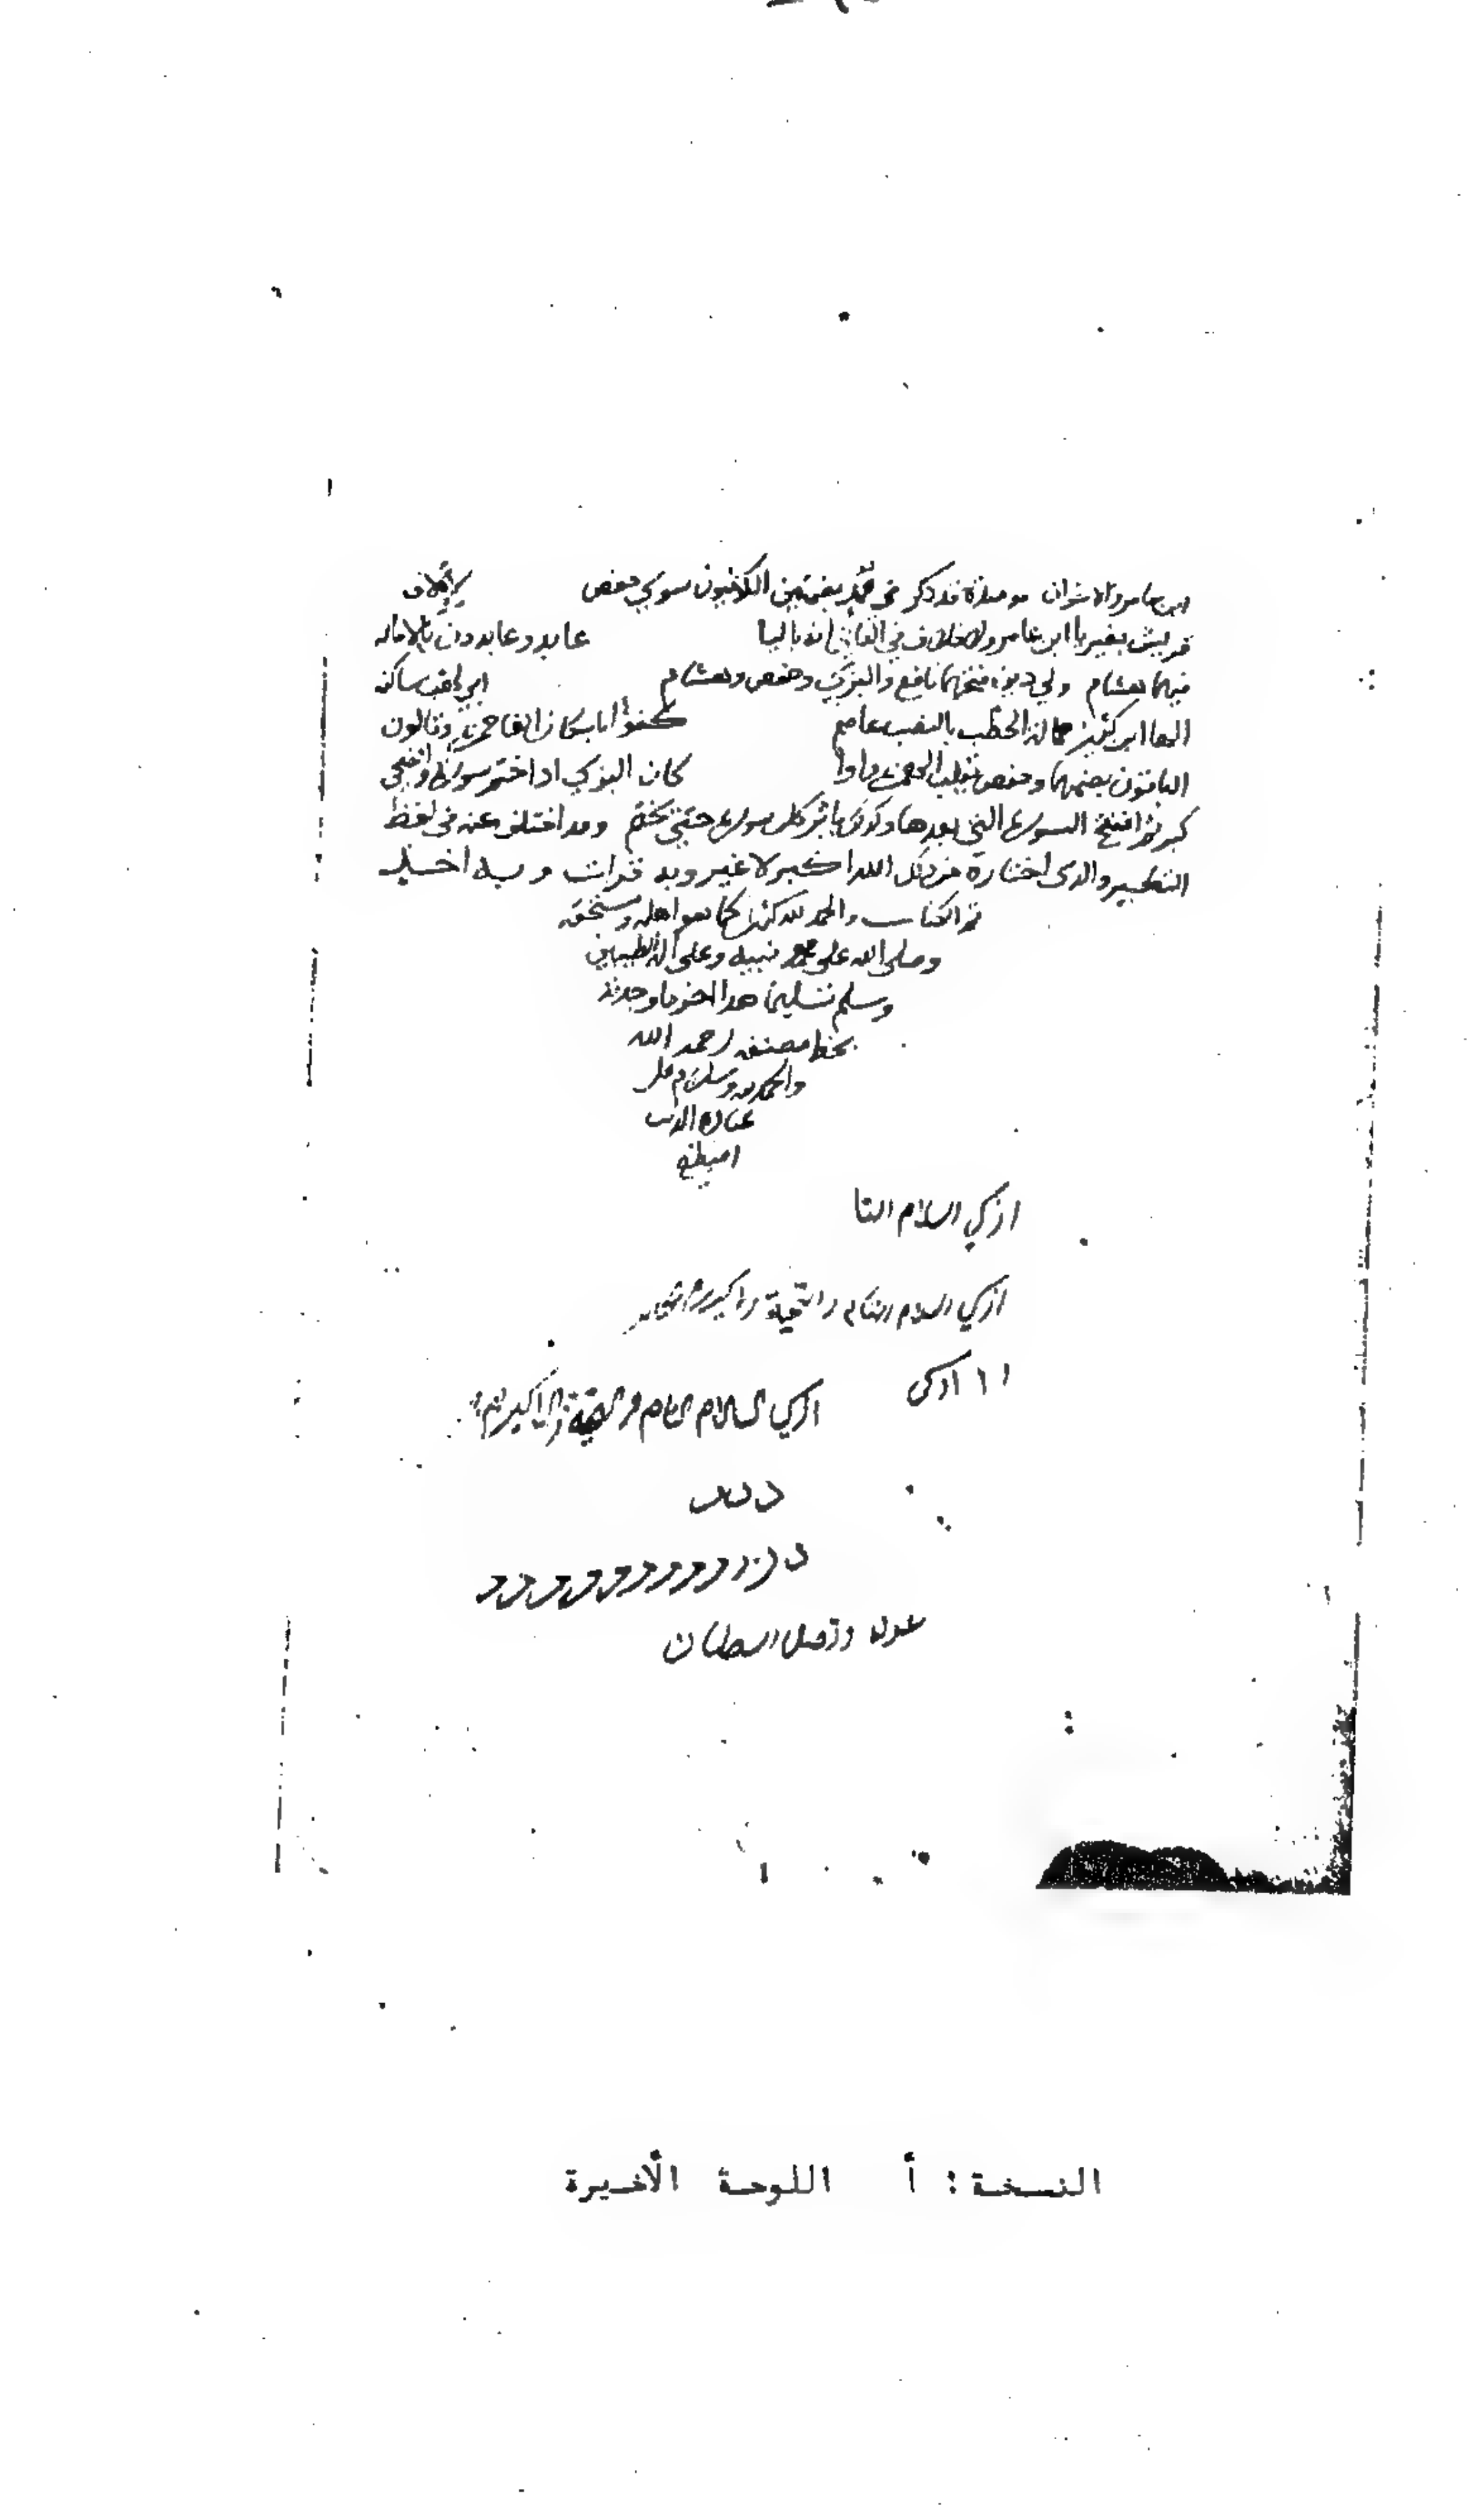 ابن عامر والاخوان موصدة قد ذكر في عمد بضمتين الكوفيون سوى حفص لإيلاف
قريش بغير يا ابن عامر ولا خلاف في الثاني انه باليا عابد وعابدون بالاماله
فيهما هشام ولي دين فتحها نافع والبزي وحفص وهشام ابي لهب ساكنة
الها ابن كثير حمالة الحطب بالنصب عاصم كفؤا باسكان الفا حمزة وقالون
الباقون بضمها وحفص يقلب الهمزة واوا كان البزي اذا ختم سورة والضحى
كبر ثم افتتح السورة التي بعدها وكذلك باثر كل سورة حتى يختم وقد اختلف عنه في لفظ
التكبير والذي اختاره من ذلك الله اكبر لا غير وبه قرات وبه اخذ
تم الكتاب والحمد لله كثيرا كما هو اهله ومستحقه
وصلى الله على محمد نبيه وعلى اله الطيبين
وسلم تسليما هذا اخر ما وجدته
بخط مصنفه رحمه الله
والحمد لله وسلام على
عباده الذين
اصطفى
ازكي السلام التا
ازكي السلام التام والتحية
ا ا ازكى
ازكي السلام التام والتحية
السلطان
النسخة : أ اللوحة الأخيرة